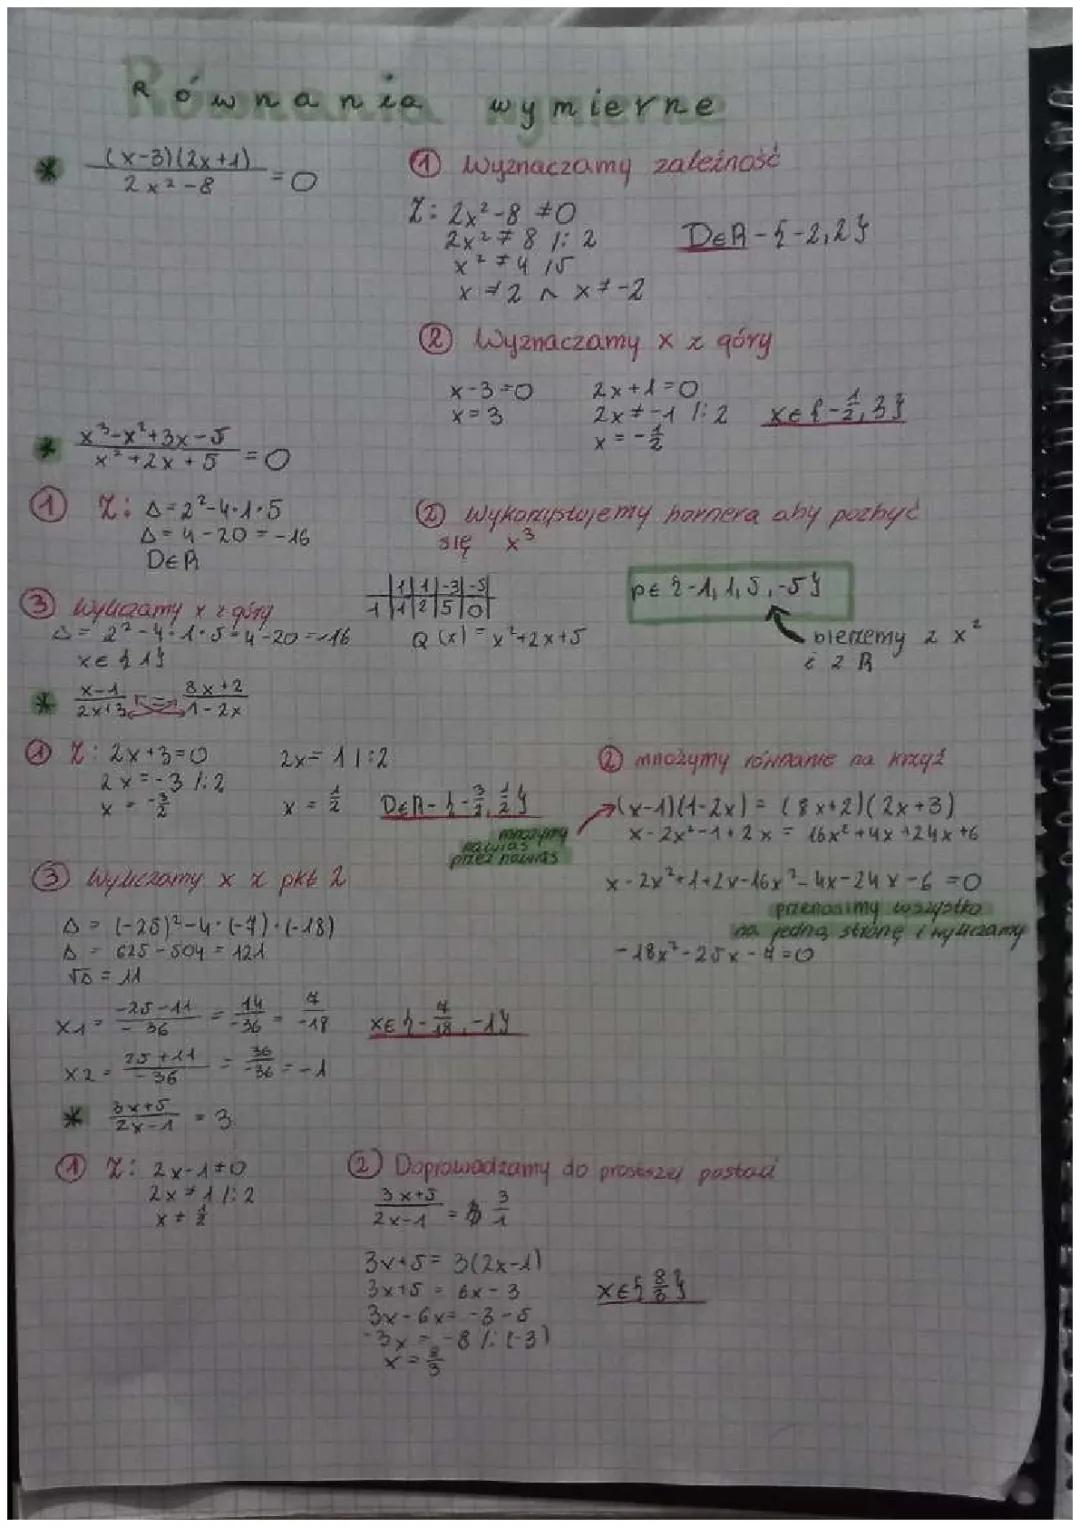 Równania wymierne
* (x-3)(2x+1) / 2x²-8 = 0
① Wyznaczamy zależność
Z: 2x²-8 ≠0
2x² ≠ 8 /: 2
x² ≠ 4 /√
x ≠ 2 ∧ x ≠ -2
D∈R - {-2,2}
② Wyznaczamy x z góry
x-3=0
x=3
2x+1=0
2x≠-1 /:2
x = -1/2
x∈{-1/2, 3}
* x³-x²+3x-5 / x²+2x+5 = 0
① Z: Δ=2²-4·1·5
Δ=4-20=-16
D∈R
② Wykorzystujemy hornera aby pozbyć
się x³
|1|1|-3|-5|
-1|1|2|5|0|
Q(x)=x²+2x+5
p∈{-1,1,5,-5}
bierzemy z x²
i z R
③ Wyliczamy x z góry
Δ= 2²-4·1·5=4-20=-16
x∈{1}
* x-1 / 2x+3 = 8x+2 / 1-2x
① Z: 2x+3=0
2x=-3 /:2
x = -3/2
2x= 1 |:2
x = 1/2
D∈R-{-3/2, 1/2}
② mnożymy równanie na krzyż
(x-1)(1-2x) = (8x+2)(2x+3)
x-2x²-1+2x = 16x²+4x+24x+6
mnożymy
nawias
przez nawias
x-2x²+1+2x-16x²-4x-24x-6 =0
przenosimy wszystko
na jedną stronę i wyliczamy
-18x²-25x-7=0
③ Wyliczamy x z pkt 2
Δ = (-25)²-4·(-7)·(-18)
Δ = 625-504 = 121
√Δ = 11
x1= -25-11 / -36 = 14/-36 = 7/-18
x∈{-7/18, -1}
x2= 25+11 / -36 = 36/-36 = -1
* 3x+5 / 2x-1 = 3
① Z: 2x-1≠0
2x≠1 /:2
x≠ 1/2
② Doprowadzamy do prostszej postaci
3x+5 / 2x-1 = 3/1
3x+5= 3(2x-1)
3x+5 = 6x-3
3x-6x= -3-5
-3x = -8 /: (-3)
x= 8/3
x∈{8/3}